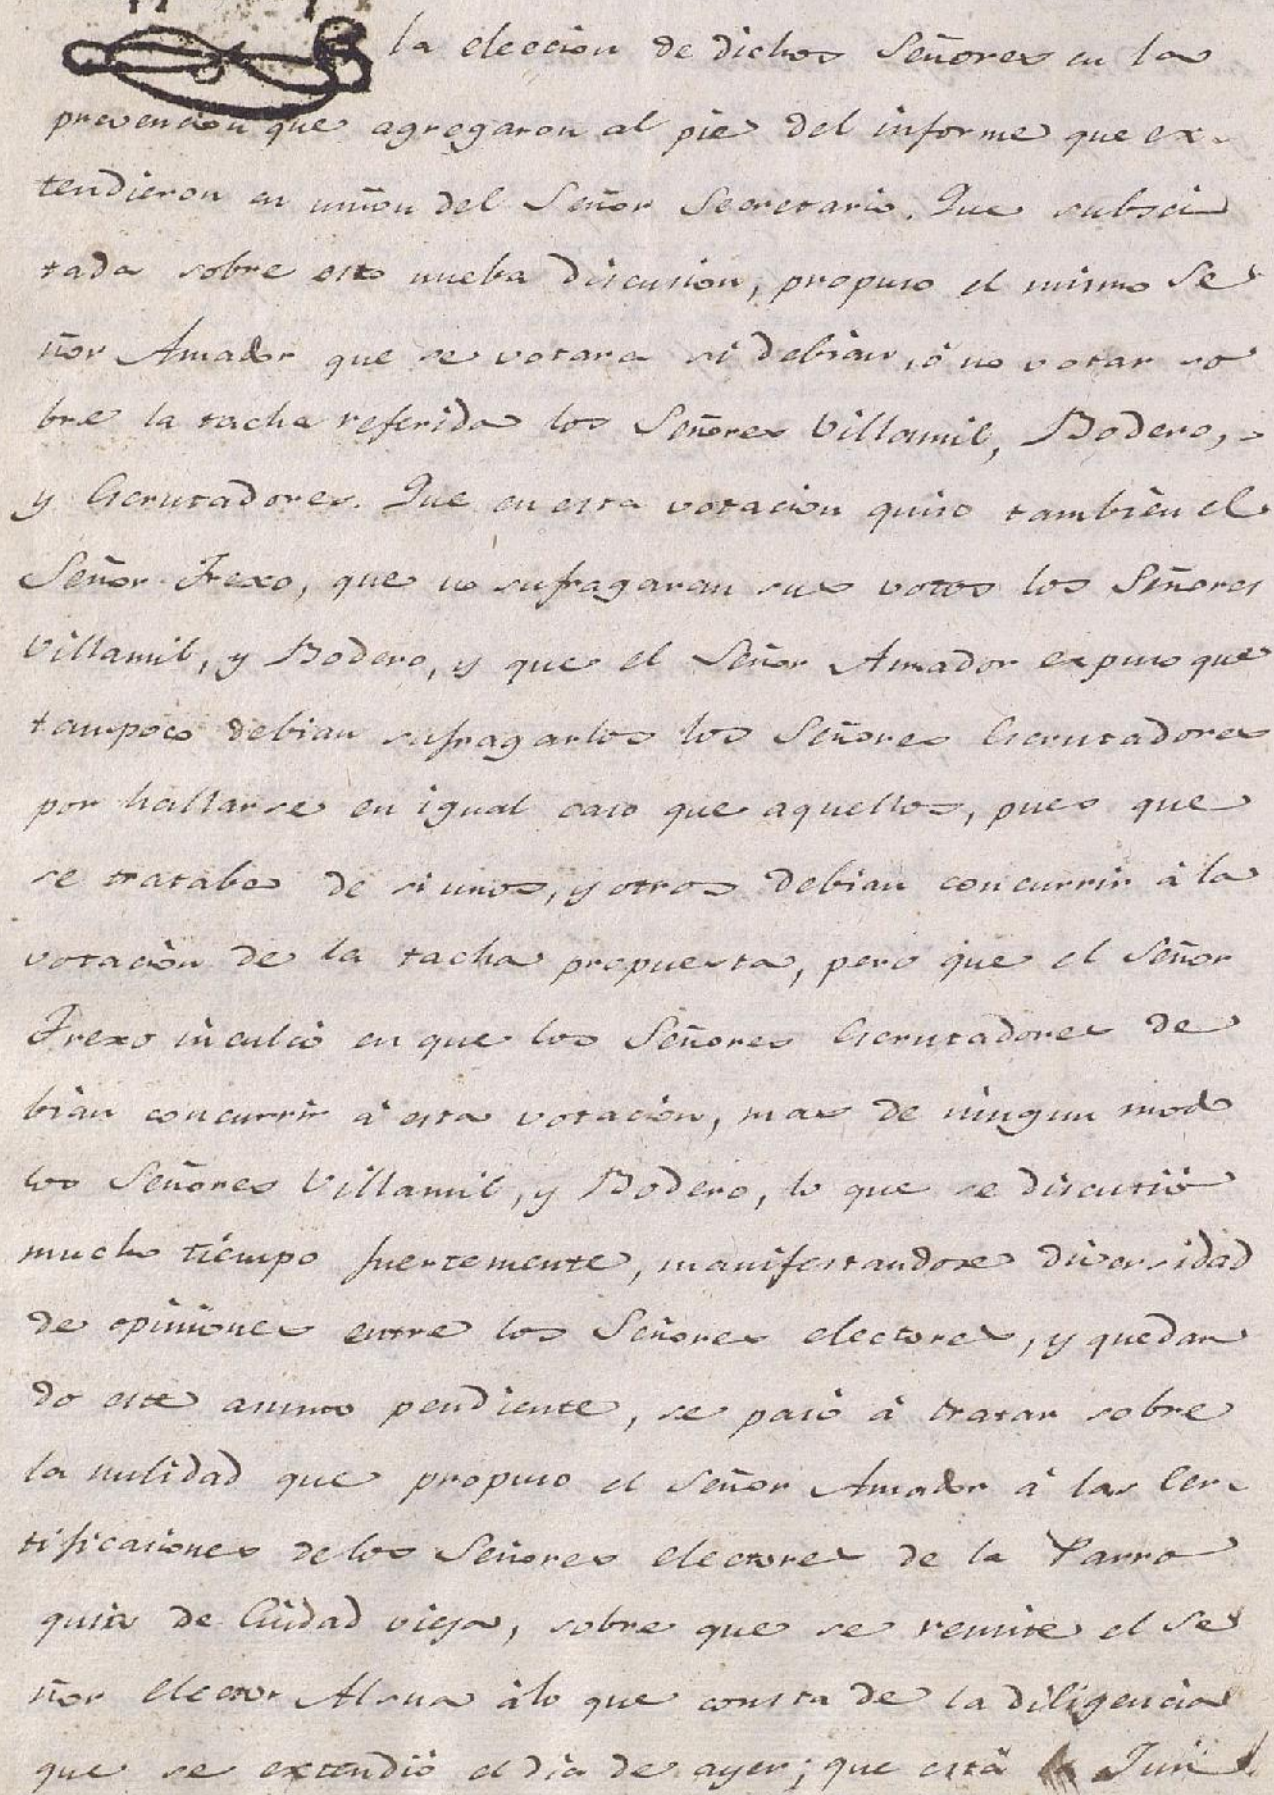 la eleccion de dichos Señores en la
prevencion que agregaron al pie del informe que ex-
tendieron en union del Señor Secretario. Que subsci
tada sobre esto nueba discusion, propuso el mismo Se
ñor Amador que se votara si debian, ó no votar so
bre la tacha referida los Señores Villamil, Bodero,
y Escrutadores. Que en esta votacion quiso tambien el
Señor Frexo, que no sufragaran sus votos los Señores
Villamil, y Bodero, y que el Señor Amador expuso que
tampoco debian sufragarlos los Señores Escrutadores
por hallarse en igual caso que aquellos, pues que
se trataba de si unos, y otros debian concurrir á la
votacion de la tacha propuesta, pero que el Señor
Frexo inculcó en que los Señores Escrutadores de
bian concurrir á esta votacion, mas de ningun modo
los Señores Villamil, y Bodero, lo que se discutió
mucho tiempo fuertemente, manifestandose diversidad
de opiniones entre los Señores electores, y quedan
do este asunto pendiente, se pasó á tratar sobre
la nulidad que propuso el Señor Amador á las Cer-
tificaciones de los Señores electores de la Parro
quia de Ciudad vieja, sobre que se remite el Se
ñor elector Alsua á lo que consta de la diligencia
que se extendió el dia de ayer; que está Jun